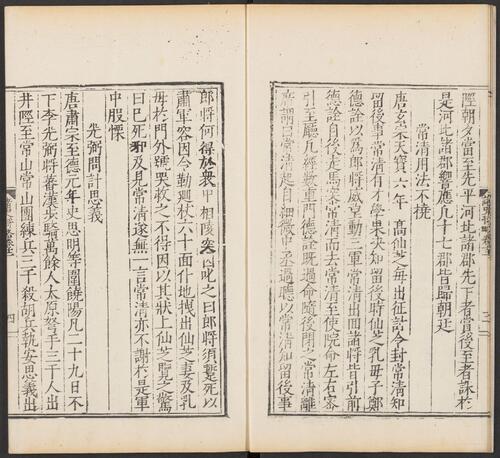 陘朝夕當至先平河北諸郡先下者賞後至者誅於
是河北諸郡響應凡十七郡皆歸朝廷
常清用法不撓
唐玄宗天寶六年高仙芝每出征討令封常清知
留後事常清有才學果決知留後時仙芝乳母子鄭
德詮自以爲郎將威望動三軍常清出回諸將皆引前
德詮自後走馬突常清而去常清至使院命左右密
引至廳凡經數重門德詮旣過命隨後閉之常清離
席謂曰常清起自細微中丞過聽以常清知留後事
郎將何得於衆中相陵突因叱之曰郎將須蹔死以
肅軍容因令勒迴杖六十面仆地拽出仙芝妻及乳
母於門外號哭救之不得因以其狀上仙芝覽之驚
曰已死邪及見常清遂無一言常清亦不謝於是軍
中股慄
先弼問計思義
唐肅宗至德元年史思明等圍饒陽凡二十九日不
下李光弼將蕃漢步騎萬餘人太原弩手三千人出
井陘至常山常山團練兵三千殺胡兵執安思義出
三
四